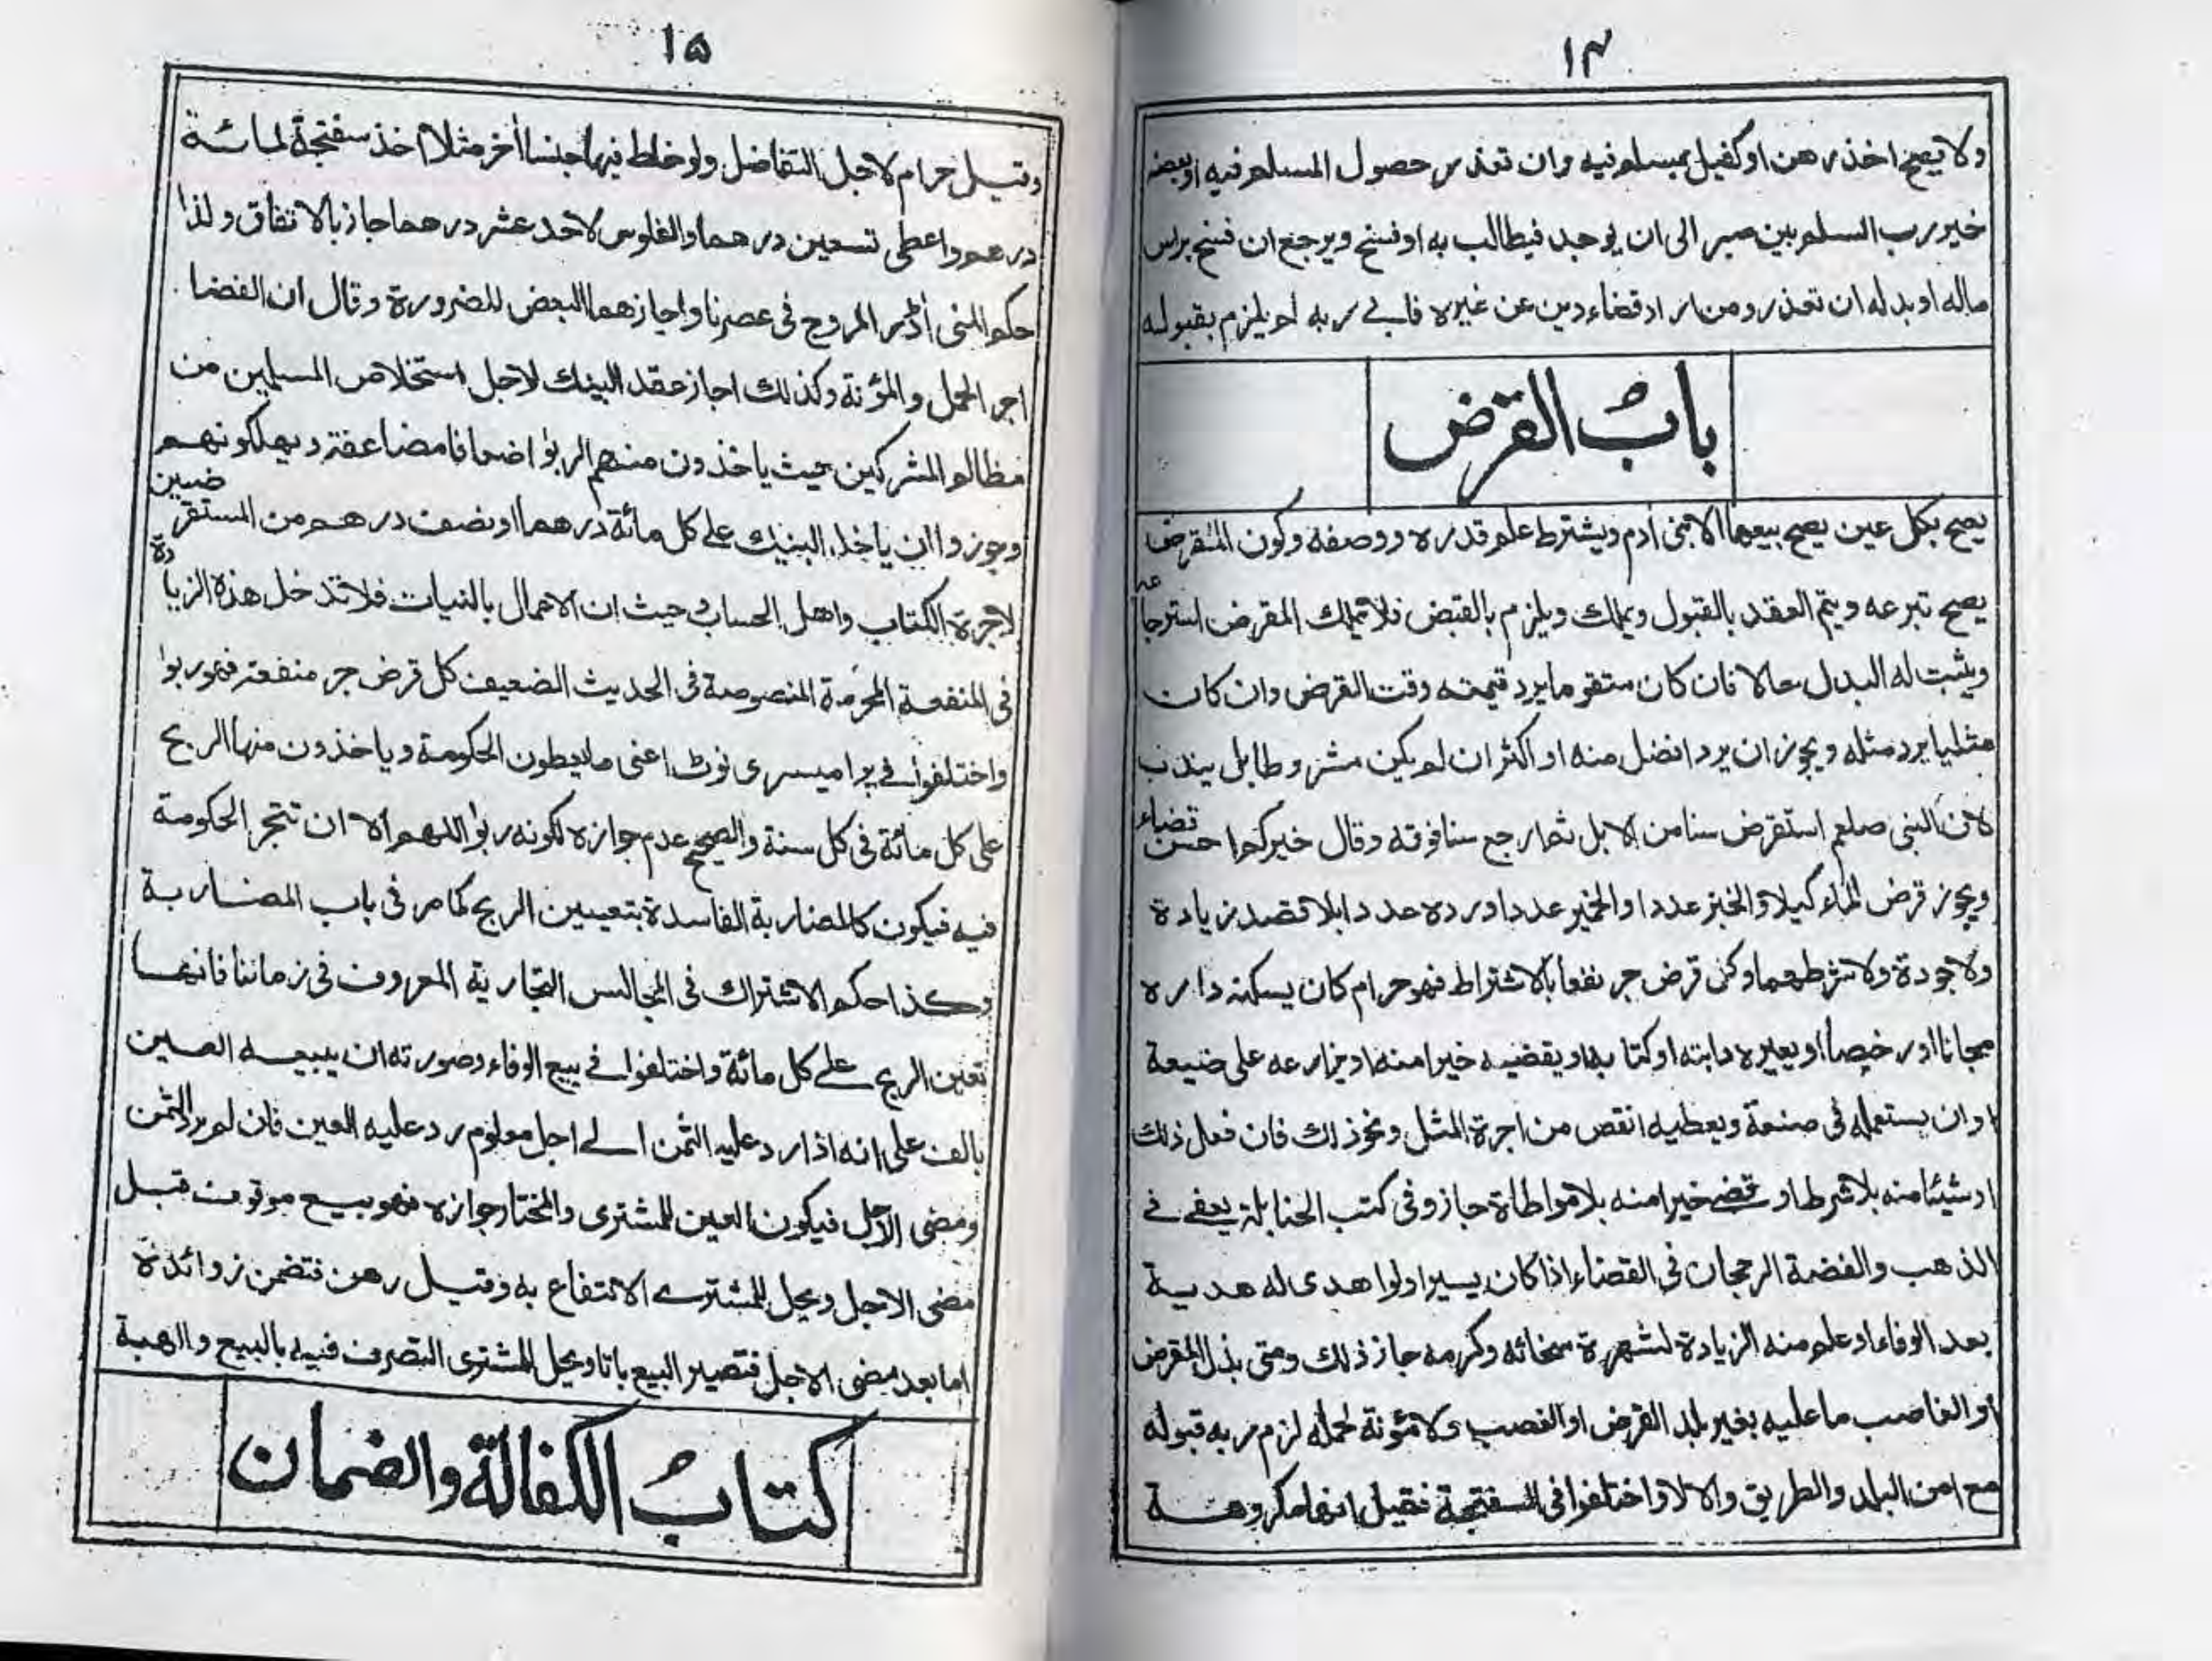 ١٤
ولا يصح اخذ رهن او كفيل بمسلم فيه وان تعذر حصول المسلم فيه او بعضه
خير رب السلم بين صبر الى ان يوجد فيطالب به او فسخ ويرجع ان فسخ براس
ماله او بدله ان تعذر ومن اراد قضاء دين عن غيره فابى ربه لم يلزم بقبوله
باب القرض
يصح بكل عين يصح بيعها الا بنى أدم ويشترط علم قدره ووصفه وكون المقرض
يصح تبرعه ويتم العقد بالقبول ويملك ويلزم بالقبض فلا يملك المقرض استرجاعه
ويثبت له البدل حالا فان كان متقوما يرد قيمته وقت القرض وان كان
مثليا يرد مثله ويجوز ان يرد افضل منه او اكثر ان لم يكن مشروطا بل يندب
لان النبى صلعم استقرض سنا من الابل ثم ارجع سنا فوقه وقال خيركم احسن قضاء
ويجوز قرض الماء كيلا والخبز عددا والخمير عددا ورده عددا بلا قصد زيادة
ولا جودة ولا شرطهما وكل قرض جر نفعا بالاشتراط فهو حرام كان يسكنه داره
مجانا او رخيصا او يعيره دابته او كتابه او يقضيه خيرا منه او يزارعه على ضيعة
او ان يستعمله فى صنعة ويعطيه انقص من اجرة المثل ونحو ذلك فان فعل ذلك
او شيئا منه بلا شرط او قضى خيرا منه بلا مواطاة جاز وفى كتب الحنابلة يعفى فى
الذهب والفضة الرجحان فى القضاء اذا كان يسيرا ولو اهدى له هدية
بعد الوفاء او علم منه الزيادة لشهرة سخائه وكرمه جاز ذلك ومتى بذل المقرض
أو الغاصب ما عليه بغير بلد القرض او الغصب ولا مؤنة لحمله لزم ربه قبوله
مع امن البلد والطريق والا لا واختلفوا فى السفتجة فقيل انها مكروهة
١۵
وقيل حرام لاجل التفاضل ولو خلط فيها جنسا أخر مثلا اخذ سفتجة لمائة
درهم واعطى تسعين درهما والفلوس لاحد عشر درهما جاز بالاتفاق ولذا
حكم المنى أڈر المروج فى عصرنا واجازهما البعض للضرورة وقال ان الفضا
اجر الحمل والمؤنة وكذلك اجاز عقد البينك لاجل استخلاص المسلمين من
مظالم المشركين حيث ياخذون منهم الربوا اضعافا مضاعفة ويهلكونهم
وجوزوا ان ياخذ البنيك على كل مائة درهما او نصف درهم من المستقرضين
لاجرة الكتاب واهل الحساب وحيث ان الاعمال بالنيات فلا تدخل هذه الزيادة
فى المنفعة المحرمة المنصوصة فى الحديث الضعيف كل قرض جر منفعة فهو ربوا
واختلفوا فى پراميسرى نوٹ اعنى ما يعطون الحكومة وياخذون منها الربح
على كل مائة فى كل سنة والصحيح عدم جوازه لكونه ربوا اللهم الا ان تتجر الحكومة
فيه فيكون كالمضاربة الفاسدة بتعيين الربح كما مر فى باب المضاربة
وكذا حكم الاشتراك فى المجالس التجارية المعروف فى زماننا فانها
تعين الربح على كل مائة واختلفوا فى بيع الوفاء وصورته ان يبيعه العين
بالف على انه اذا رد عليه الثمن الى اجل معلوم رد عليه العين فان لم يرد الثمن
ومضى الاجل فيكون العين للمشترى والمختار جوازه فهو بيع موقوف قبل
مضى الاجل ويحل للمشترى الانتفاع به وقيل رهن فتضمن زوائدة
اما بعد مضى الاجل فتصير البيع باتا ويحل للمشترى التصرف فيه بالبيع والهبة
كتاب الكفالة والضمان